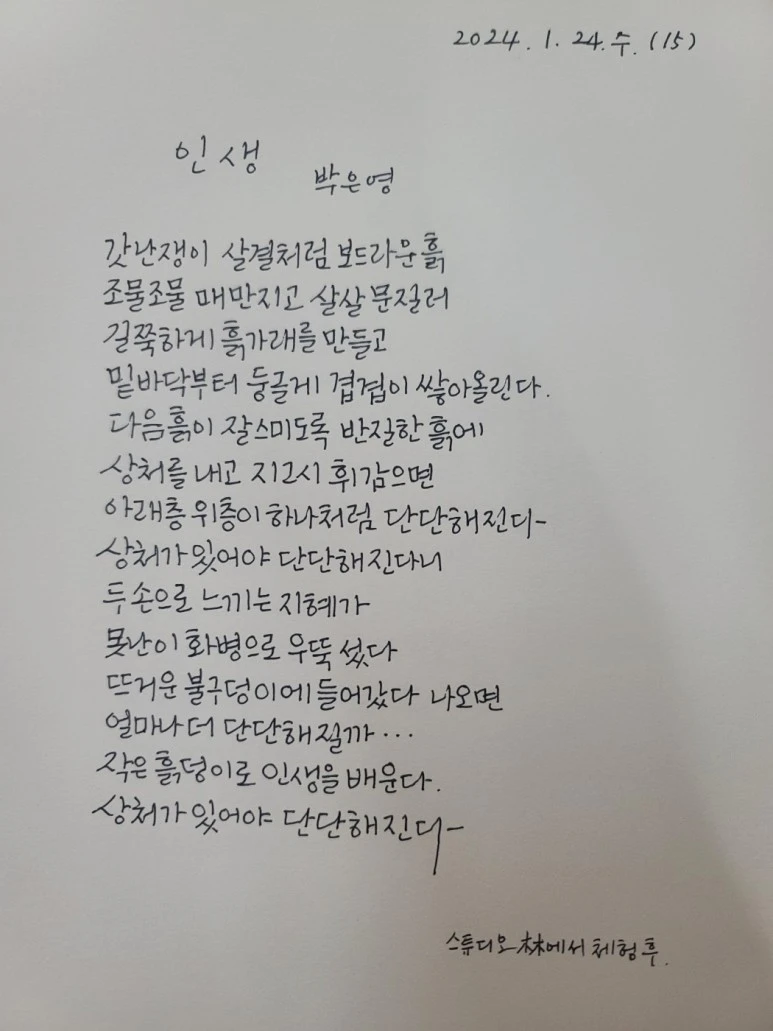 2024. 1. 24. 수. (15)
인생
박은영
갓난쟁이 살결처럼 보드라운 흙
조물조물 매만지고 살살 문질러
길쭉하게 흙가래를 만들고
밑바닥부터 둥글게 겹겹이 쌓아올린다.
다음 흙이 잘 스미도록 반질한 흙에
상처를 내고 지그시 휘감으면
아래층 위층이 하나처럼 단단해진다
상처가 있어야 단단해진다니
두 손으로 느끼는 지혜가
못난이 화병으로 우뚝 섰다
뜨거운 불구덩이에 들어갔다 나오면
얼마나 더 단단해질까...
작은 흙덩이로 인생을 배운다.
상처가 있어야 단단해진다
스튜디오 林에서 체험 후.